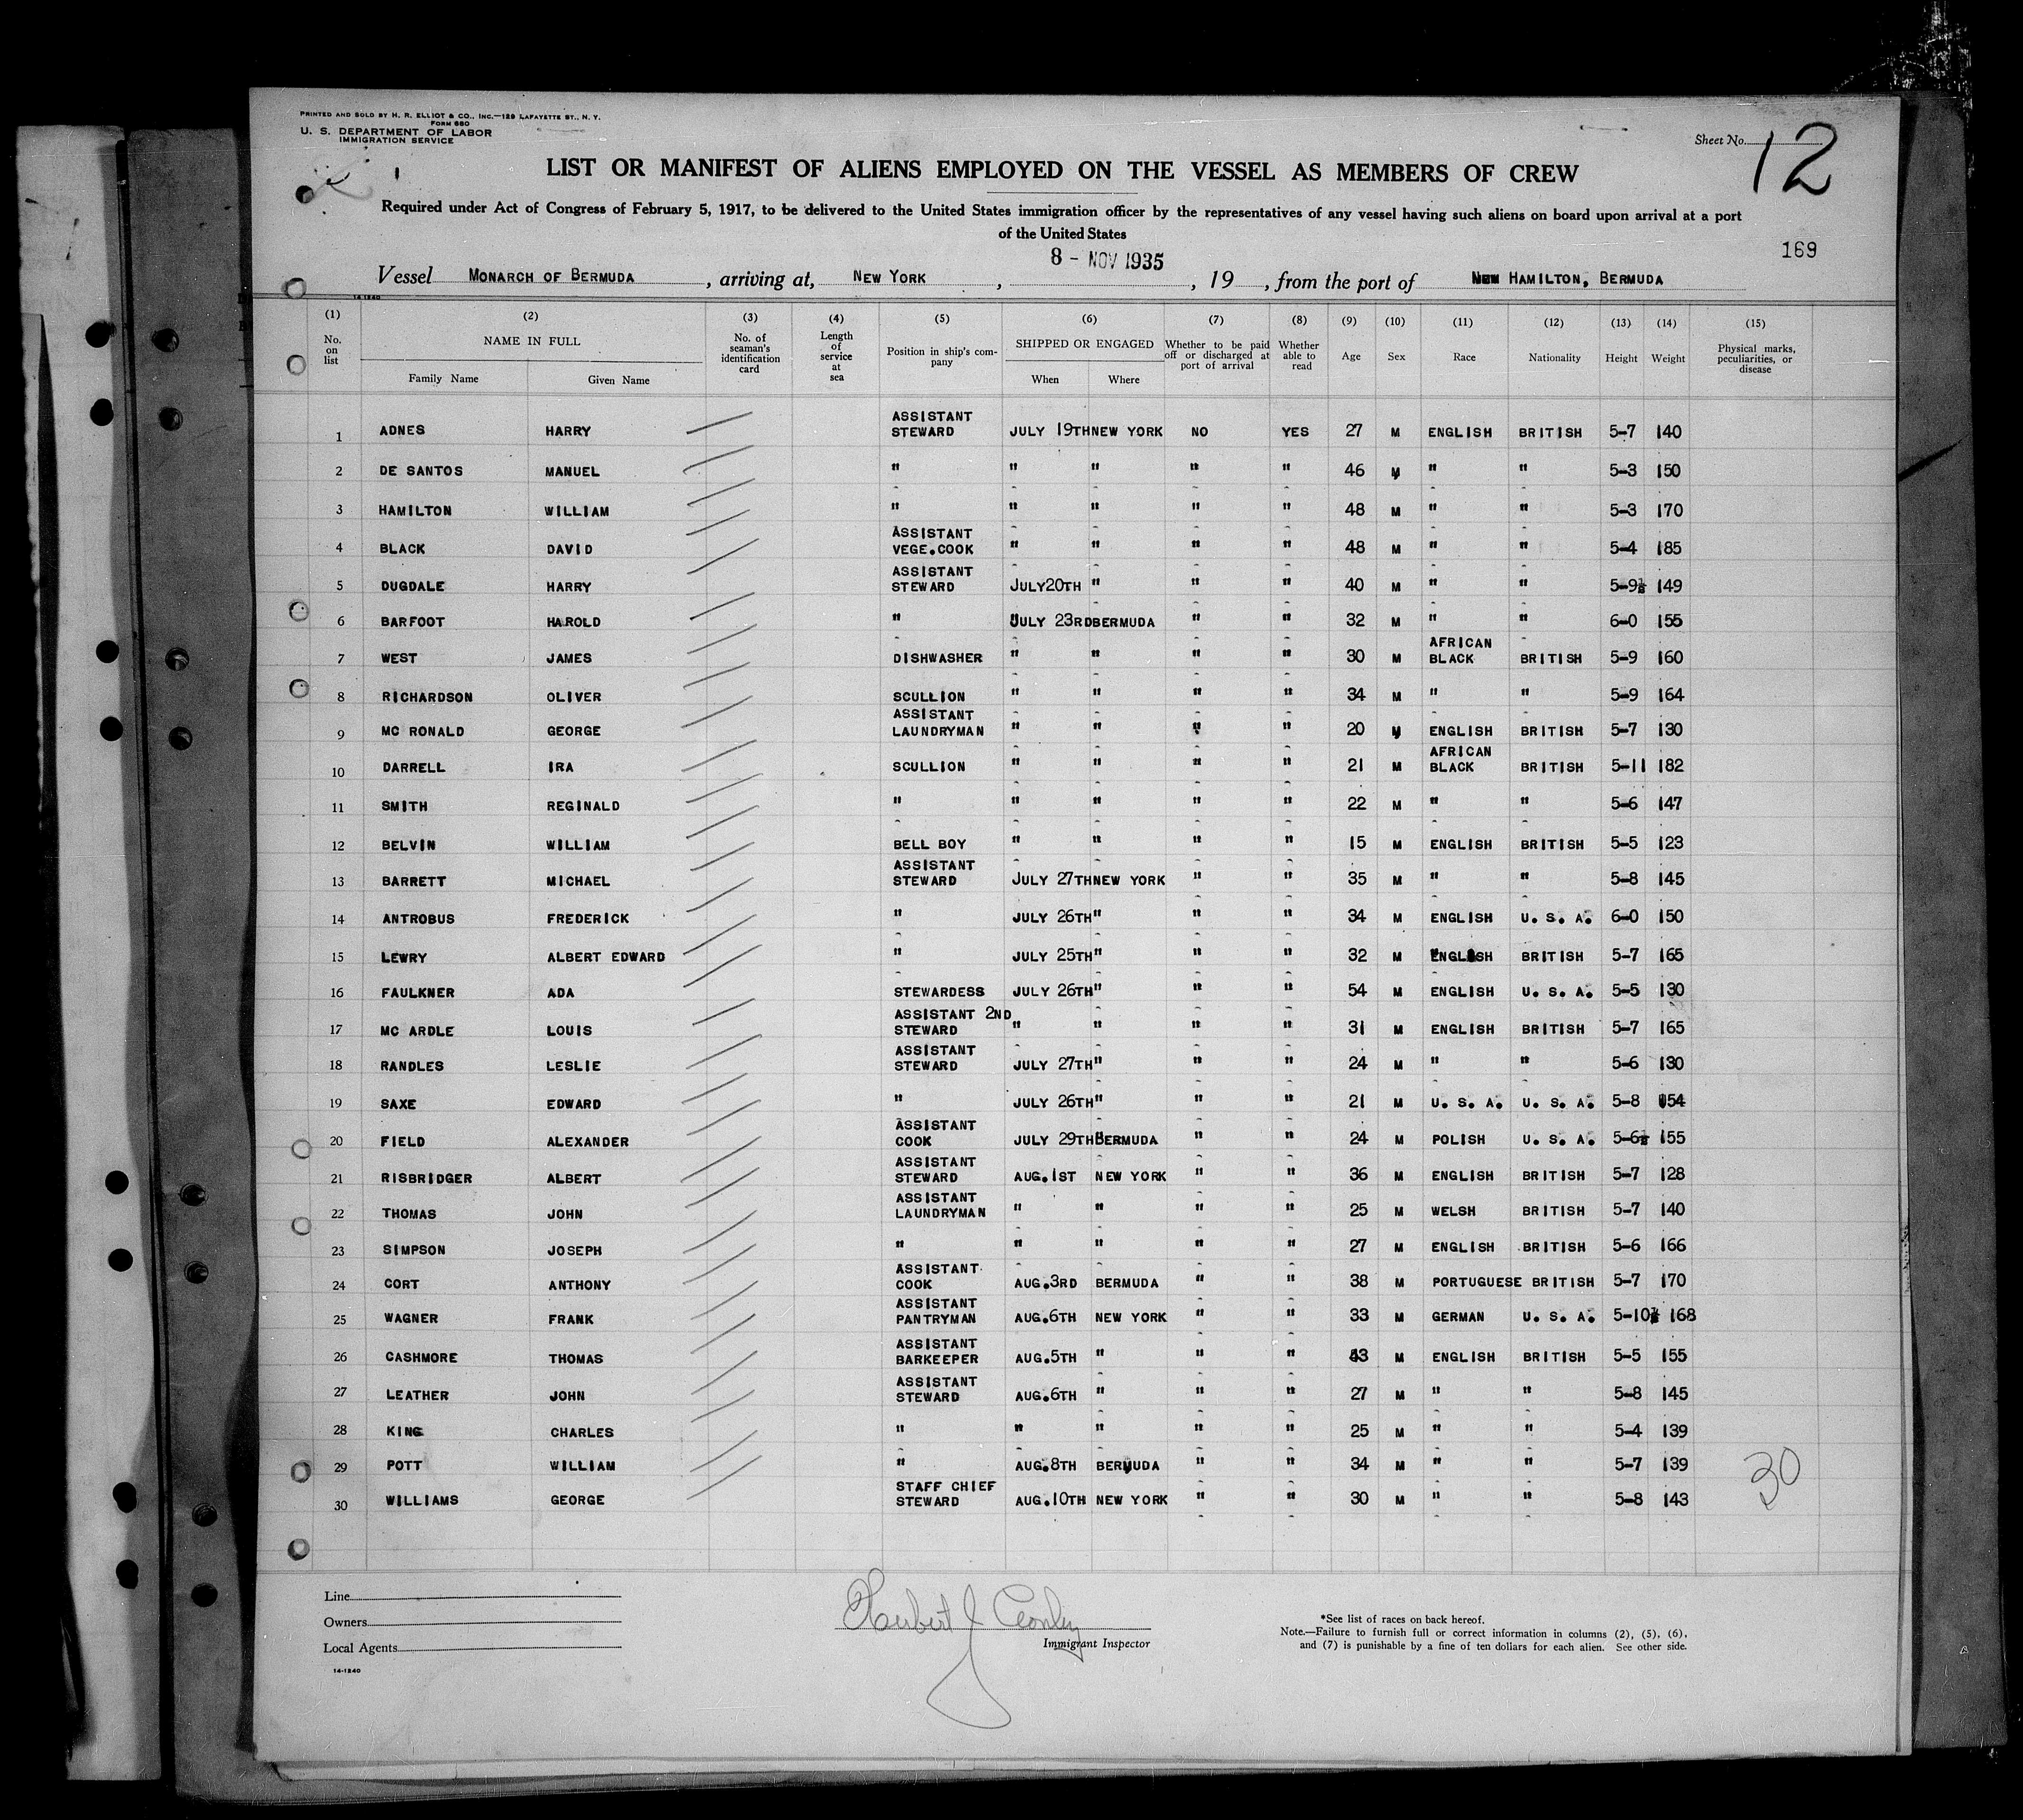 PRINTED AND SOLD BY H. R. ELLIOT & CO., INC.—129 LAFAYETTE ST., N. Y.
FORM 680
U. S. DEPARTMENT OF LABOR
IMMIGRATION SERVICE
Sheet No. 12
LIST OR MANIFEST OF ALIENS EMPLOYED ON THE VESSEL AS MEMBERS OF CREW
Required under Act of Congress of February 5, 1917, to be delivered to the United States immigration officer by the representatives of any vessel having such aliens on board upon arrival at a port
of the United States
169
8 - NOV 1935
Vessel MONARCH OF BERMUDA, arriving at, NEW YORK, , 19 , from the port of HAMILTON, BERMUDA
14-1240
(1) (2) (3) (4) (5) (6) (7) (8) (9) (10) (11) (12) (13) (14) (15)
No. on list NAME IN FULL Family Name Given Name No. of seaman's identification card Length of service at sea Position in ship's company SHIPPED OR ENGAGED When Where Whether to be paid off or discharged at port of arrival Whether able to read Age Sex Race Nationality Height Weight Physical marks, peculiarities, or disease
1 ADNES HARRY ASSISTANT STEWARD JULY 19TH NEW YORK NO YES 27 M ENGLISH BRITISH 5-7 140
2 DE SANTOS MANUEL " " " " " 46 M " " 5-3 150
3 HAMILTON WILLIAM " " " " " 48 M " " 5-3 170
4 BLACK DAVID ASSISTANT VEGE.COOK " " " " 48 M " " 5-4 185
5 DUGDALE HARRY ASSISTANT STEWARD JULY20TH " " " 40 M " " 5-9½ 149
6 BARFOOT HAROLD " JULY 23RD BERMUDA " " 32 M " " 6-0 155
7 WEST JAMES DISHWASHER " " " " 30 M AFRICAN BLACK BRITISH 5-9 160
8 RICHARDSON OLIVER SCULLION " " " " 34 M " " 5-9 164
9 MC RONALD GEORGE ASSISTANT LAUNDRYMAN " " " " 20 M ENGLISH BRITISH 5-7 130
10 DARRELL IRA SCULLION " " " " 21 M AFRICAN BLACK BRITISH 5-11 182
11 SMITH REGINALD " " " " " 22 M " " 5-6 147
12 BELVIN WILLIAM BELL BOY " " " " 15 M ENGLISH BRITISH 5-5 123
13 BARRETT MICHAEL ASSISTANT STEWARD JULY 27TH NEW YORK " " 35 M " " 5-8 145
14 ANTROBUS FREDERICK " JULY 26TH " " " 34 M ENGLISH U. S. A. 6-0 150
15 LEWRY ALBERT EDWARD " JULY 25TH " " " 32 M ENGLISH BRITISH 5-7 165
16 FAULKNER ADA STEWARDESS JULY 26TH " " " 54 M ENGLISH U. S. A. 5-5 130
17 MC ARDLE LOUIS ASSISTANT 2ND STEWARD " " " " 31 M ENGLISH BRITISH 5-7 165
18 RANDLES LESLIE ASSISTANT STEWARD JULY 27TH " " " 24 M " " 5-6 130
19 SAXE EDWARD " JULY 26TH " " " 21 M U. S. A. U. S. A. 5-8 154
20 FIELD ALEXANDER ASSISTANT COOK JULY 29TH BERMUDA " " 24 M POLISH U. S. A. 5-6½ 155
21 RISBRIDGER ALBERT ASSISTANT STEWARD AUG.1ST NEW YORK " " 36 M ENGLISH BRITISH 5-7 128
22 THOMAS JOHN ASSISTANT LAUNDRYMAN " " " " 25 M WELSH BRITISH 5-7 140
23 SIMPSON JOSEPH " " " " " 27 M ENGLISH BRITISH 5-6 166
24 CORT ANTHONY ASSISTANT COOK AUG.3RD BERMUDA " " 38 M PORTUGUESE BRITISH 5-7 170
25 WAGNER FRANK ASSISTANT PANTRYMAN AUG.6TH NEW YORK " " 33 M GERMAN U. S. A. 5-10½ 168
26 CASHMORE THOMAS ASSISTANT BARKEEPER AUG.5TH " " " 43 M ENGLISH BRITISH 5-5 155
27 LEATHER JOHN ASSISTANT STEWARD AUG.6TH " " " 27 M " " 5-8 145
28 KING CHARLES " " " " " 25 M " " 5-4 139
29 POTT WILLIAM " AUG.8TH BERMUDA " " 34 M " " 5-7 139
30 WILLIAMS GEORGE STAFF CHIEF STEWARD AUG.10TH NEW YORK " " 30 M " " 5-8 143
30
Line
Owners
Local Agents
14-1240
Herbert J
Immigrant Inspector
*See list of races on back hereof.
Note.—Failure to furnish full or correct information in columns (2), (5), (6),
and (7) is punishable by a fine of ten dollars for each alien. See other side.